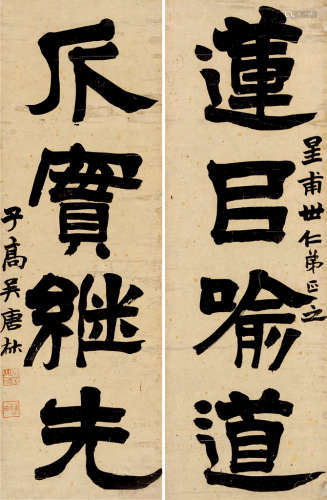 蓮㠯喻道
星甫世仁弟正之
實継先
子高吳唐林